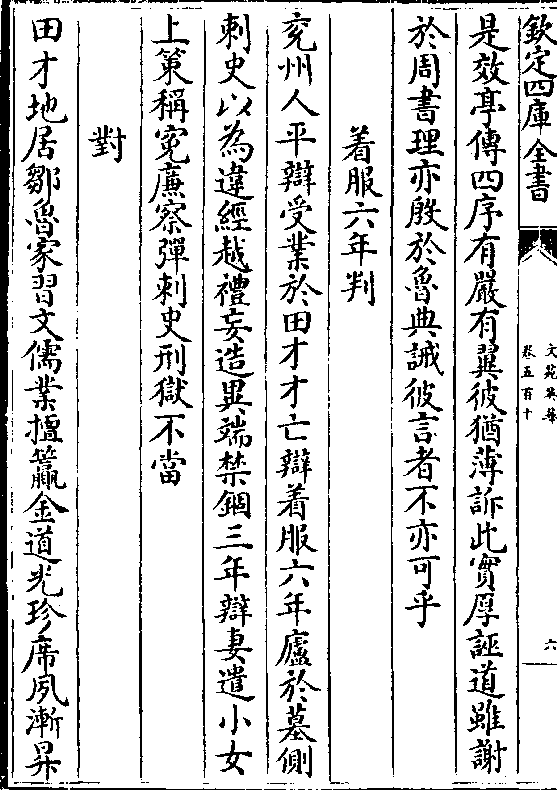 欽定四庫全書
文苑英華
卷五百十
六
是效亭傳四序有嚴有翼彼猶薄訴此實厚誣道雖謝
於周書理亦殷於魯典誡彼言者不亦可乎
着服六年判
兖州人平辯受業於田才才亡辯着服六年廬於墓側
刺史以為違經越禮妄造異端禁錮三年辯妻遣小女
上策稱寃廉察彈刺史刑獄不當
對
田才地居鄒魯家習文儒業擅籯金道光珍席夙漸昇